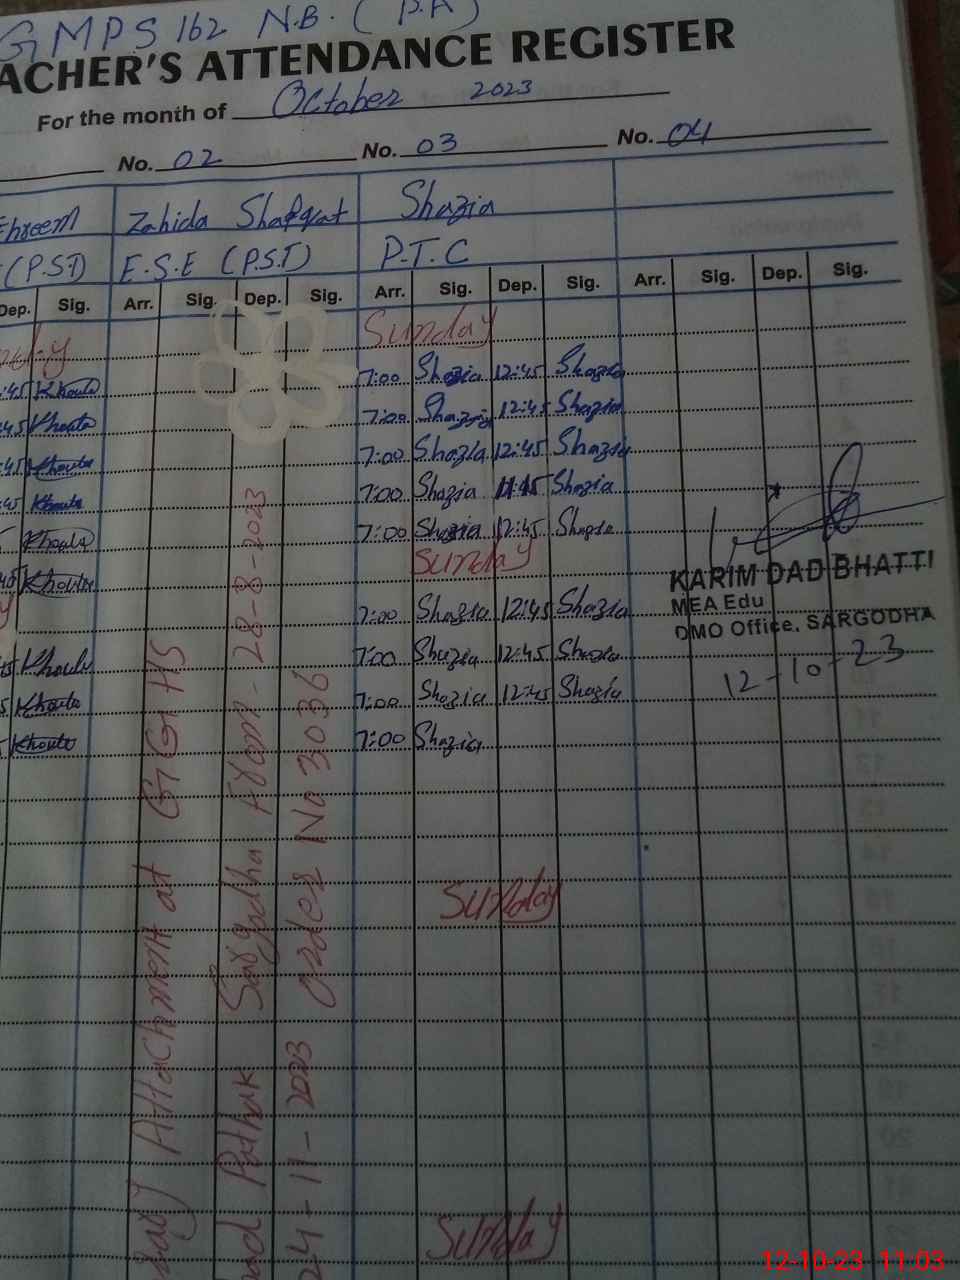 GMPS 162 N.B. (P.A)
ACHER'S ATTENDANCE REGISTER
For the month of October 2023
No. 02 No. 03 No. 04
Zahida Shafqat Shazia
(P.S.T) E.S.E (P.S.T) P.T.C
Dep. Sig. Arr. Sig. Dep. Sig. Arr. Sig. Dep. Sig. Arr. Sig. Dep. Sig.
Sunday
:45 Khoula 7:00 Shazia 12:45 Shazia
:45 Khoula 7:00 Shazia 12:45 Shazia
:45 Khoula 7:00 Shazia 12:45 Shazia
:45 Khoula 7:00 Shazia 11:45 Shazia
Khoula 7:00 Shazia 12:45 Shazia
Sunday
:45 Khoula
7:00 Shazia 12:45 Shazia
Khoula 7:00 Shazia 12:45 Shazia
Khoula 7:00 Shazia 12:45 Shazia
Khoula 7:00 Shazia
KARIM DAD BHATTI
MEA Edu
DMO Office, SARGODHA
12-10-23
Sunday
Sunday
Attachment at GGHS
Sargodha from - 28-8-2023
24-11-2023 order No 3036
12-10-23 11:03